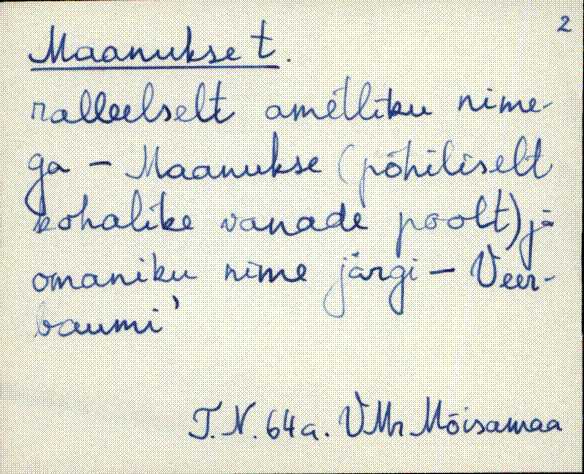 2
Maanukse t.
ralleelselt ametliku nime-
ga - Maanukse (põhiliselt
kohalike vanade poolt) ja
omaniku nime järgi - Veer-
baumi'
T.N. 64 a. VMr Mõisamaa